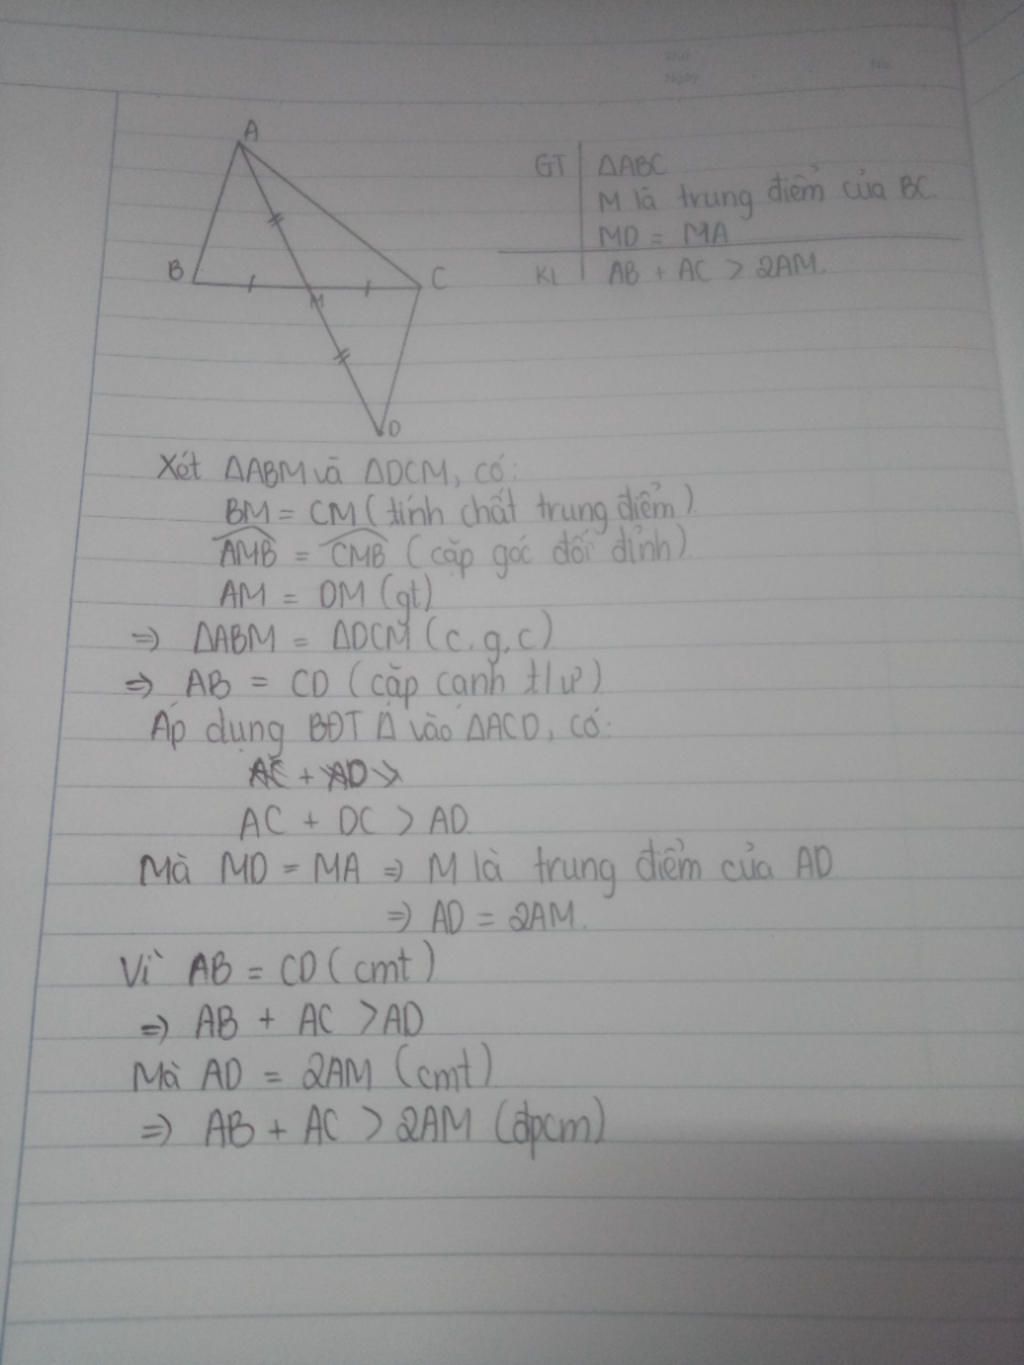 A
B
C
M
D
GT ΔABC
M là trung điểm của BC.
MD = MA
KL AB + AC > 2AM.
Xét ΔABM và ΔDCM, có:
BM = CM (tính chất trung điểm)
AMB = CMB (cặp góc đối đỉnh)
AM = DM (gt)
=> ΔABM = ΔDCM (c.g.c)
=> AB = CD (cặp cạnh t/ư)
Áp dụng BĐT Δ vào ΔACD, có:
AC + AD >
AC + DC > AD
Mà MD = MA => M là trung điểm của AD
=> AD = 2AM.
Vì AB = CD (cmt)
=> AB + AC > AD
Mà AD = 2AM (cmt)
=> AB + AC > 2AM (đpcm)